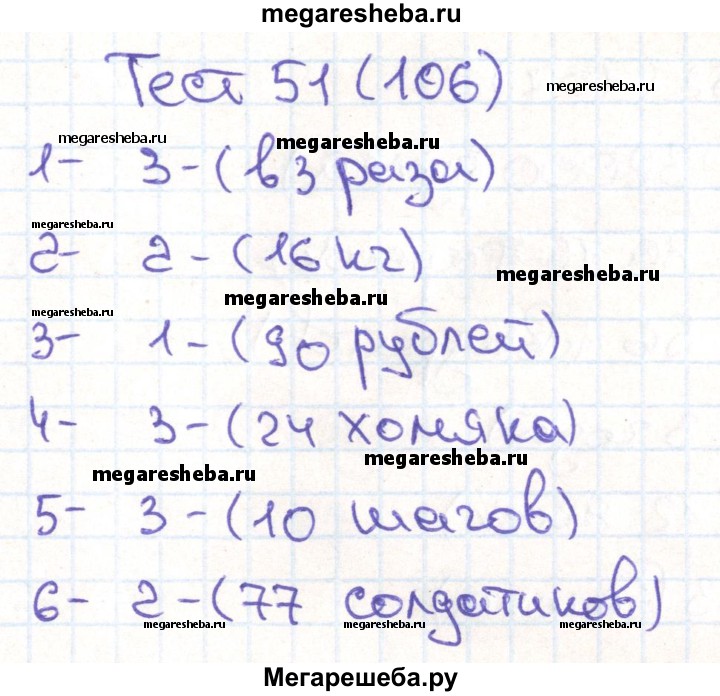 megaresheba.ru
Тест 51 (106)
megaresheba.ru
megaresheba.ru
megaresheba.ru
1- 3-(в 3 раза)
megaresheba.ru
2- 2-(16 кг)
megaresheba.ru
megaresheba.ru
megaresheba.ru
3- 1-(90 рублей)
4- 3-(24 хомяка)
megaresheba.ru
megaresheba.ru
5- 3-(10 шагов)
6- 2-(77 солдатиков)
megaresheba.ru
megaresheba.ru
megaresheba.ru
Мегарешеба.ру